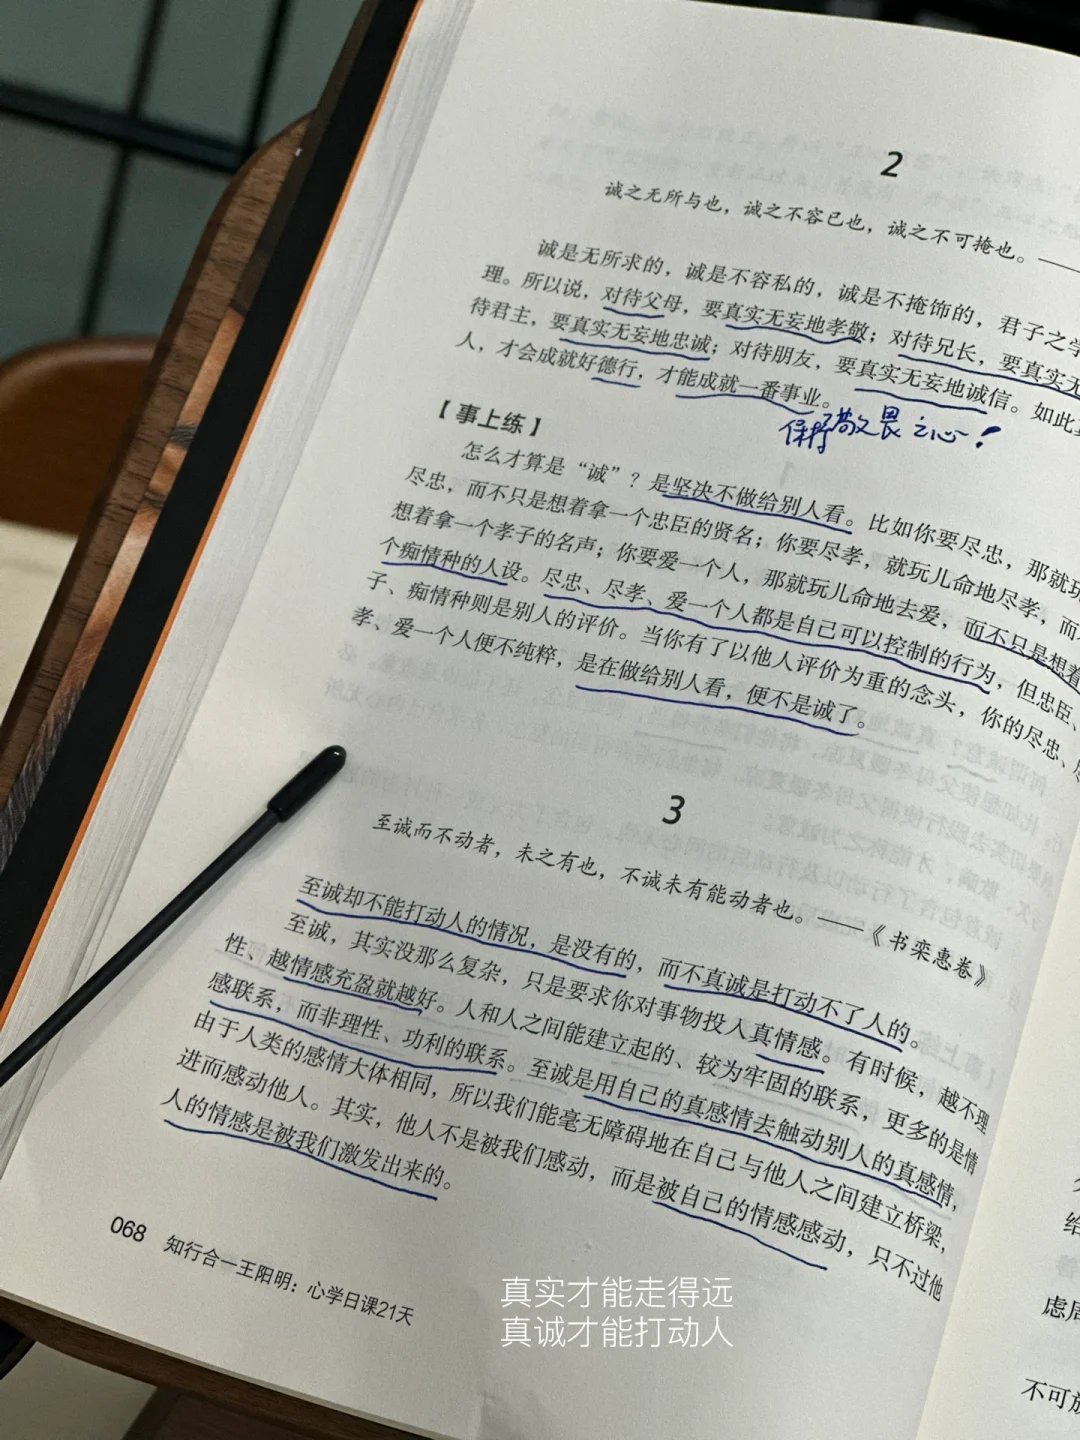 2
诚之无所与也，诚之不容已也，诚之不可掩也。——
诚是无所求的，诚是不容私的，诚是不掩饰的，君子之学
理。所以说，对待父母，要真实无妄地孝敬；对待兄长，要真实无
待君主，要真实无妄地忠诚；对待朋友，要真实无妄地诚信。如此
人，才会成就好德行，才能成就一番事业。
保持敬畏之心！
【事上练】
怎么才算是“诚”？是坚决不做给别人看。比如你要尽忠，那就玩
尽忠，而不只是想着拿一个忠臣的贤名；你要尽孝，就玩儿命地尽孝，而
想着拿一个孝子的名声；你要爱一个人，那就玩儿命地去爱，而不只是想着
个痴情种的人设。尽忠、尽孝、爱一个人都是自己可以控制的行为，但忠臣、
子、痴情种则是别人的评价。当你有了以他人评价为重的念头，你的尽忠、
孝、爱一个人便不纯粹，是在做给别人看，便不是诚了。
3
至诚而不动者，未之有也，不诚未有能动者也。——《书栾惠卷》
至诚却不能打动人的情况，是没有的，而不真诚是打动不了人的。
至诚，其实没那么复杂，只是要求你对事物投入真情感。有时候，越不理
性、越情感充盈就越好。人和人之间能建立起的、较为牢固的联系，更多的是情
感联系，而非理性、功利的联系。至诚是用自己的真感情去触动别人的真感情，
由于人类的感情大体相同，所以我们能毫无障碍地在自己与他人之间建立桥梁，
进而感动他人。其实，他人不是被我们感动，而是被自己的情感感动，只不过他
人的情感是被我们激发出来的。
068 知行合一王阳明：心学日课21天
真实才能走得远
真诚才能打动人
给
虑周
不可放